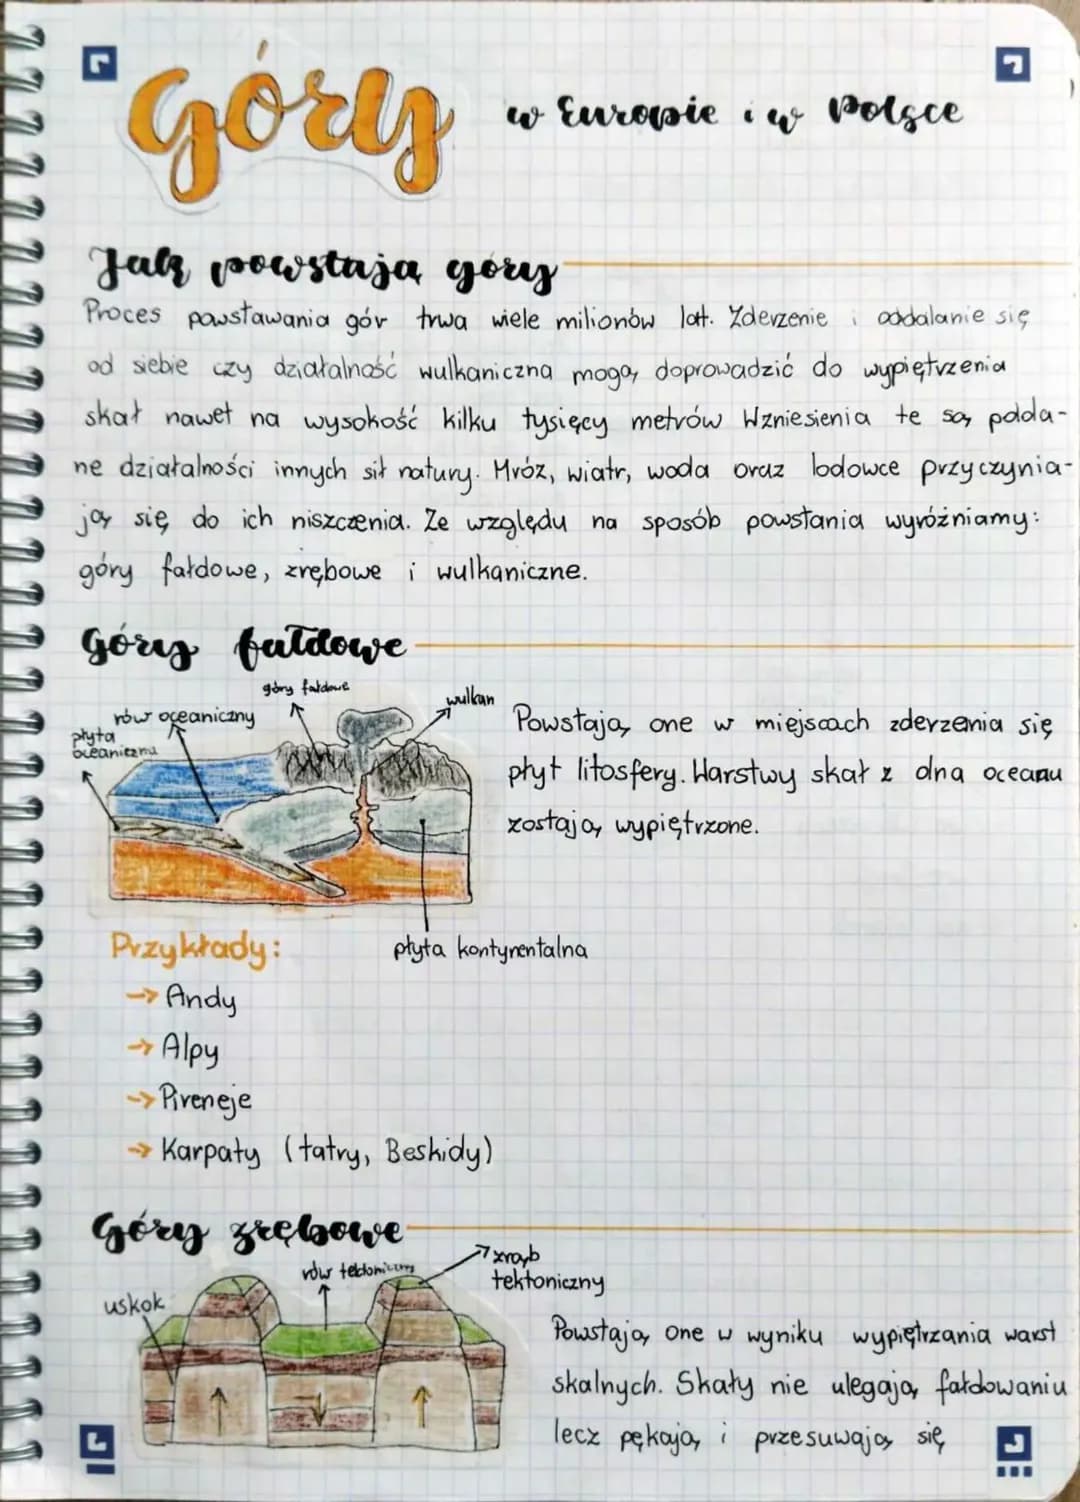 Góry w Europie i w Polsce
Jak powstają góry
Proces powstawania gór trwa wiele milionów lat. Zderzenie i oddalanie się
od siebie czy działalność wulkaniczna mogą doprowadzić do wypiętrzenia
skał nawet na wysokość kilku tysięcy metrów Wzniesienia te są podda-
ne działalności innych sił natury. Mróz, wiatr, woda oraz lodowce przyczynia-
ją się do ich niszczenia. Ze względu na sposób powstania wyróżniamy:
góry fałdowe, zrębowe i wulkaniczne.
Góry fałdowe
góry fałdowe
wulkan
rów oceaniczny
płyta
oceaniczna
Powstają one w miejscach zderzenia się
płyt litosfery. Warstwy skał z dna oceanu
zostają wypiętrzone.
płyta kontynentalna
Przykłady:
→ Andy
→ Alpy
→ Pireneje
→ Karpaty (tatry, Beskidy)
Góry zrębowe
rów tektoniczny
zrąb
tektoniczny
uskok
Powstają one w wyniku wypiętrzania warst
skalnych. Skały nie ulegają fałdowaniu
lecz pękają i przesuwają się